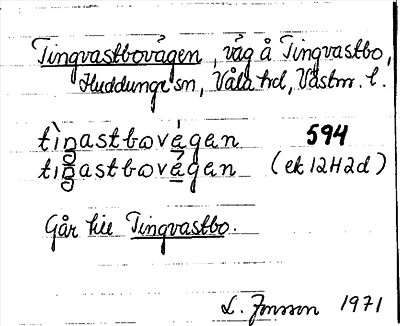 Tingvastbovägen, väg å Tingvastbo,
Huddunge sn, Våla hd, Västm. l.
tìŋastbové̱gan 594
tiŋastbové̱gan (ek 12H2d)
Går till Tingvastbo.
L. Jonsson 1971